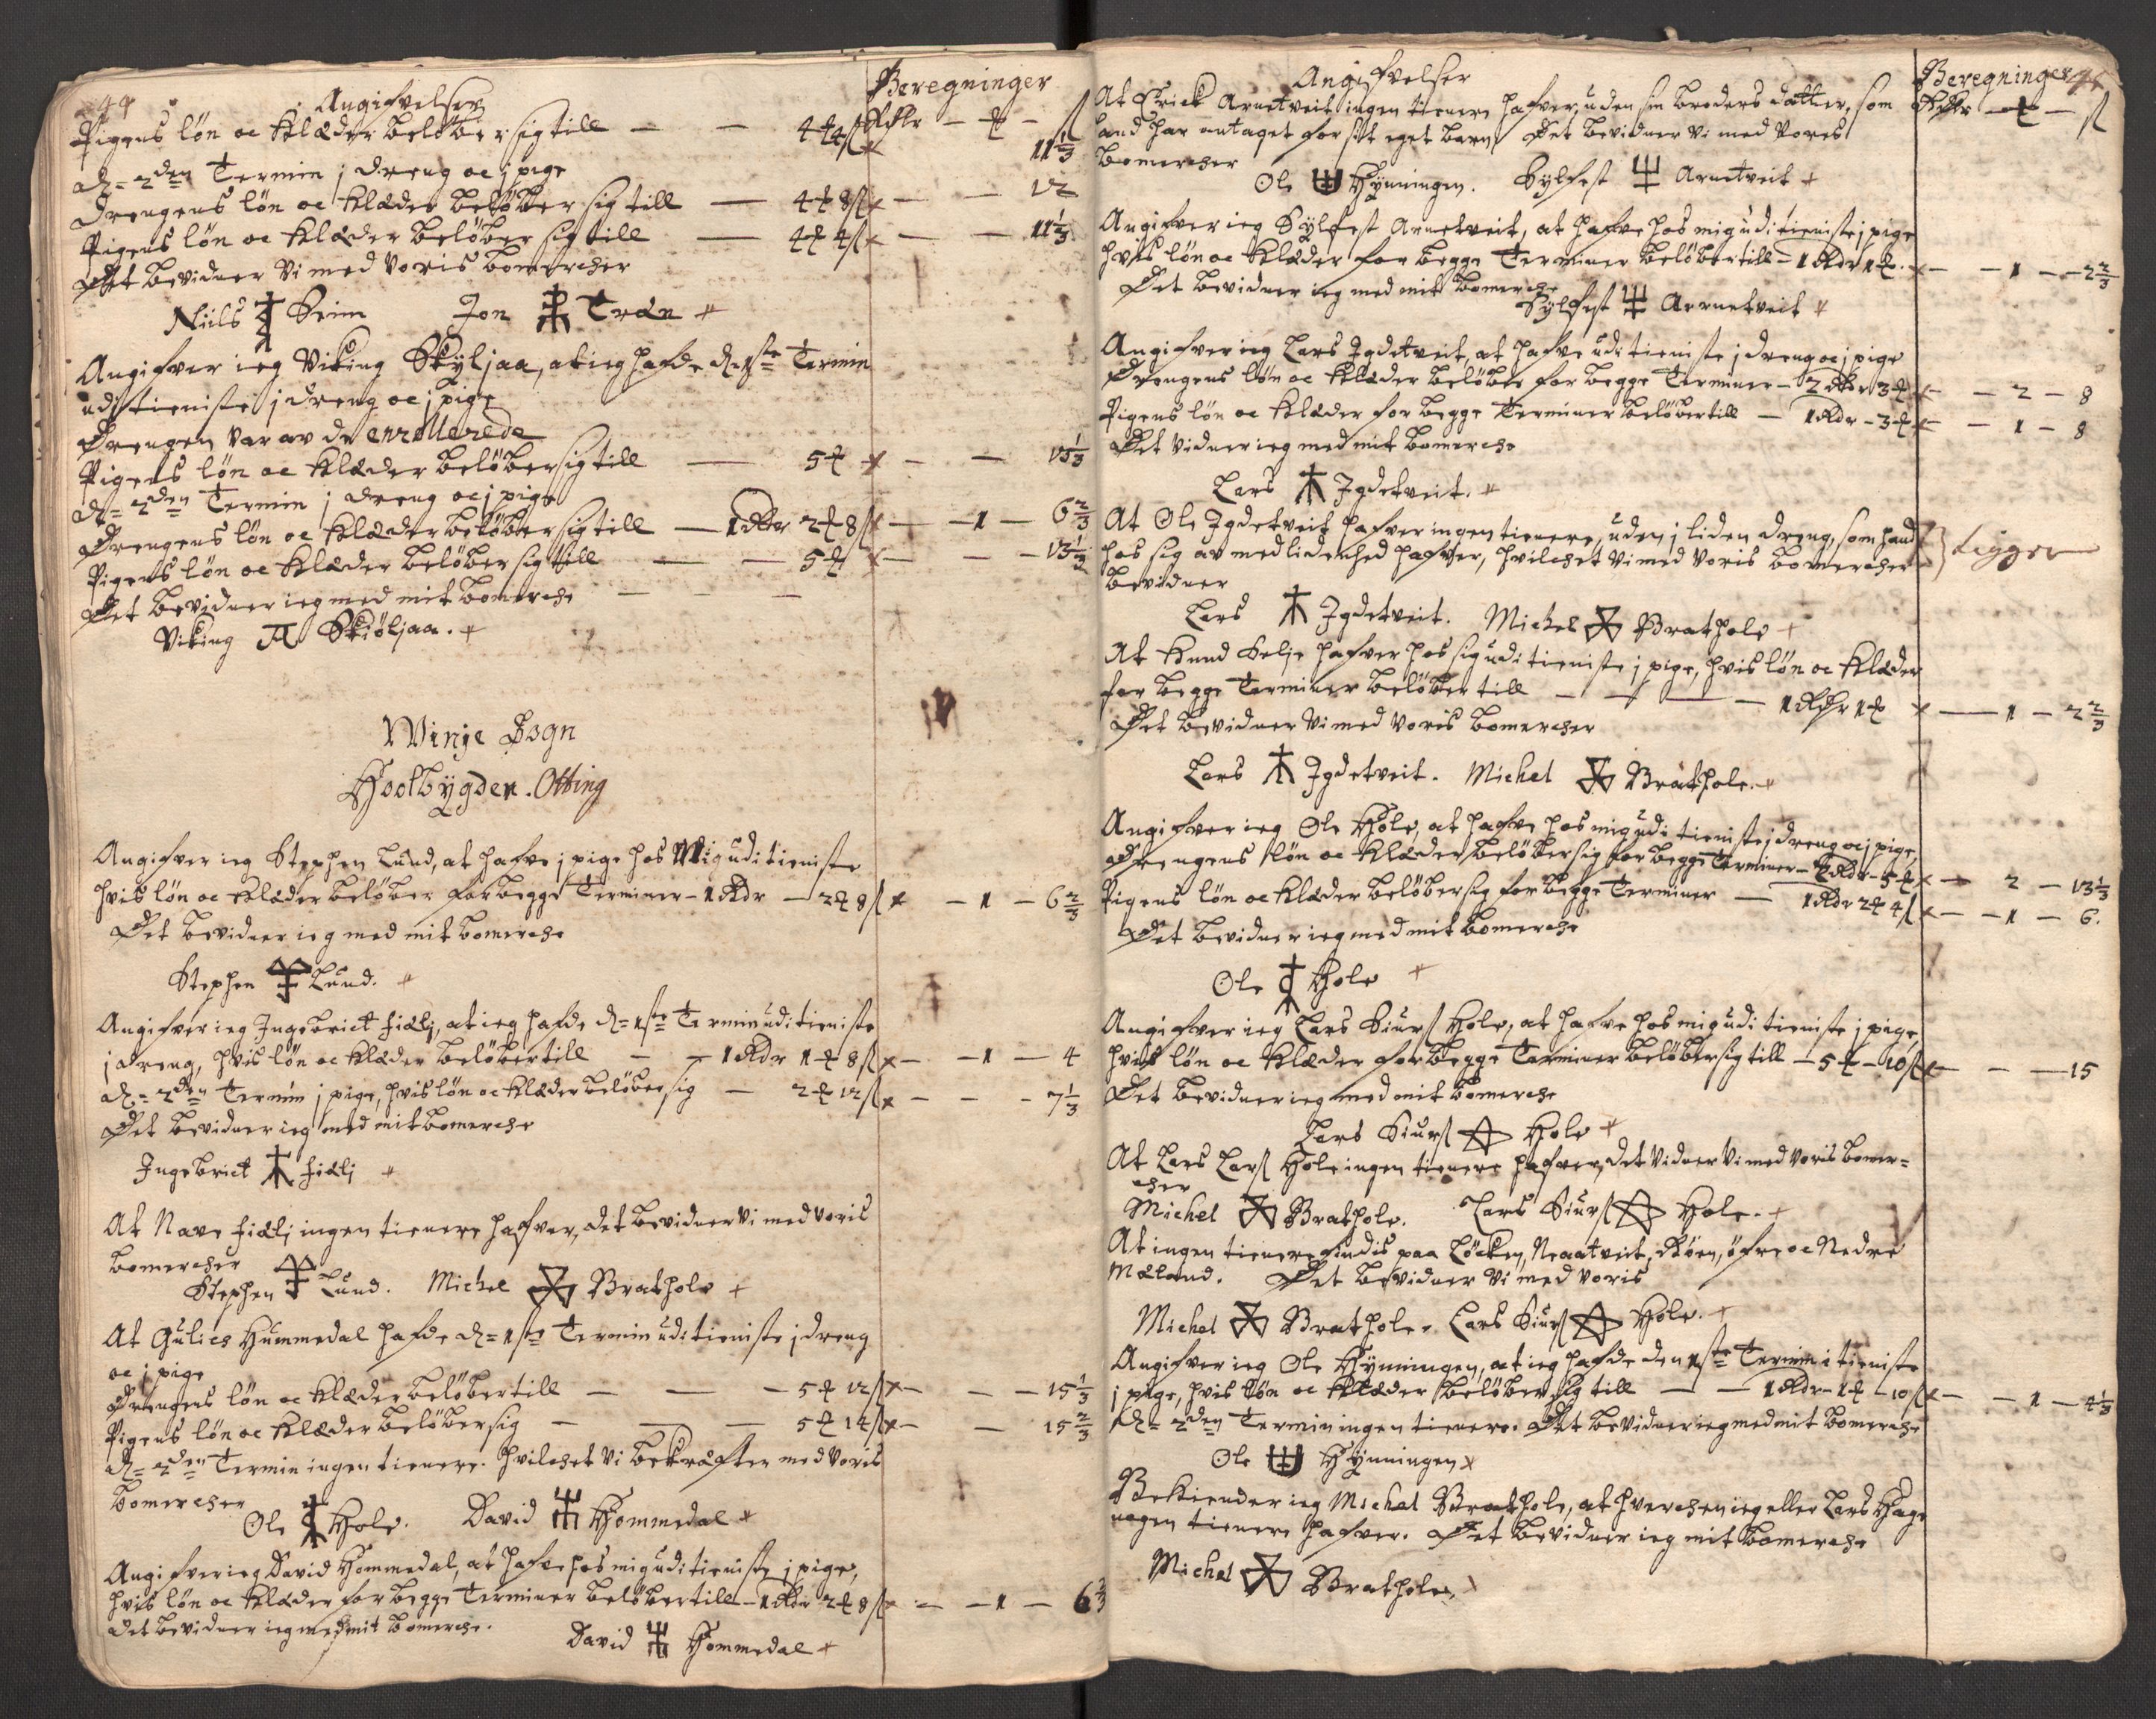 44
Angifvelser
Beregninger
Rdlr — ₰ — ß
Pigens løn oc klæder beløber sig till — — 4 ₰ 4 ß × 11 1/3
d= 2den Termin j dreng oc j pige
Drengens løn oc klæder beløber sig till — 4 ₰ 8 ß × — — 12
Pigens løn oc klæder beløber sig till — 4 ₰ 4 ß × — — 11 1/3
Det bevidner Vi med Voris bomercher
Niils Seim Jon Træn
Angifver ieg Viking Skyljaa, at ieg hafde d. 1ste Termin
udi tieniste j dreng oc j pige
Drengen var av de enrollerede
Pigens løn oc klæder beløber sig till — 5 ₰ × — — 13 1/3
d= 2den Termin j dreng oc j pige
Drengens løn oc klæder beløber sig till — 1 Rdr 2 ₰ 8 ß × — 1 — 6 2/3
Pigens løn oc klæder beløber sig till — — 5 ₰ × — — 13 1/3
Det bevidner ieg med mit bomerche — — —
Viking Skiøljaa.
Winje Sogn
Hoolbygden. Otting
Angifver ieg Stephen Lund, at hafve j pige hos Mig udi tieniste
hvis løn oc klæder beløber for begge Terminer — 1 Rdr — 2 ₰ 8 ß × — 1 — 6 2/3
Det bevidner ieg med mit bomerche
Stephen Lund.
Angifver ieg Ingebrict fielj, at ieg hafde d= 1ste Termin udi tieniste
j dreng, hvis løn oc klæder beløber till — — 1 Rdr 1 ₰ 8 ß × — — 1 — 4
d= 2den Termin j pige, hvis løn oc klæder beløber sig — 2 ₰ 12 ß × — — — 7 1/3
Det bevidner ieg med mit bomerche
Ingebrict fielj
At Nave fielj ingen tienere hafver, det bevidner Vi med Voris
bomercher
Stephen Lund. Michel Brathole
At Gulics Hummedal hafde d= 1ste Termin udi tieniste j dreng
oc j pige
Drengens løn oc klæder beløber till — — — 5 ₰ 12 ß × — — — 15 1/3
Pigens løn oc klæder beløber sig — — — 5 ₰ 14 ß × — — 15 2/3
d= 2den Termin ingen tienere. hvilchet Vi bekræfter med Voris
bomercher
Ole Hole. David Hommedal
Angifver ieg David Hommedal, at hafve hos mig udi tieniste j pige,
hvis løn oc klæder for begge Terminer beløber till — 1 Rdr 2 ₰ 8 ß × — — 1 — 6 2/3
det bevidner ieg med mit bomerche.
David Hommedal
Angifvelser
Beregninger
Rdlr — ₰ — ß
At Erick Arnetveit ingen tienere hafver, uden sin broders datter, som
hand har antaget for sit eget barn Det bevidner Vi med Vores
bomercher
Ole Hynningen. Sylfest Arnetveit
Angifver ieg Sylfest Arnetveit, at hafve hos mig udi tieniste j pige
hvis løn oc klæder for begge Terminer beløber till — 1 Rdr 1 ₰. × — — 1 — 2 2/3
Det bevidner ieg med mit bomerche
Sylfest Arrnetveit
Angifver ieg Lars Igdetveit, at hafve udi tieniste j dreng oc j pige
Drengens løn oc klæder beløber for begge Terminer — 2 Rdr 3 ₰ × — — 2 — 8
Pigens løn oc klæder for begge Terminer beløber till — 1 Rdr — 3 ₰ × — — 1 — 8
Det vidner ieg med mit bomerche
Lars Igdetveit.
At Ole Igdetveit hafver ingen tienere, uden j liden dreng, som hand
hos sig av medlidenhed hafver, hvilchet Vi med Voris bomercher } tigger
bevidner
Lars Igdetveit. Michel Brathole
At Knud Selje hafver hos sig udi tieniste j pige, hvis løn oc klæder
for begge Terminer beløber till — — — 1 Rdr 1 ₰ × — 1 — 2 2/3
Det bevidner Vi med Voris bomercher
Lars Igdetveit. Michel Brathole.
Angifver ieg Ole Hole, at hafve hos mig udi tieniste j dreng oc j pige,
Drengens løn oc klæder beløber sig for begge Terminer — 2 Rdr — 5 ₰ × — 2 — 13 1/3
Pigens løn oc klæder beløber sig for begge Terminer — 1 Rdr 2 ₰ 4 ß × — — 1 — 6.
Det bevidner ieg med mit bomerche
Ole Hole
Angifver ieg Lars Siurß Hole, at hafve hos mig udi tieniste j pige
hvis løn oc klæder for begge Terminer beløber sig till — 5 ₰ — 10 ß × — — — 15
Det bevidner ieg med mit bomerche
Lars Siurß Hole
At Lars Larß Hole ingen tienere hafver, det vidner Vi med Voris bomer=
cher
Michel Brathole. Lars Siurß Hole.
At ingen tienere findis paa Løcken, Neaatveit, Røen, øfre oc Nedre
Mæland. Det bevidner Vi med Voris
Michel Brathole. Lars Siurß Hole.
Angifver ieg Ole Hynningen, at ieg hafde den 1ste Termin i tieniste
j pige, hvis løn oc klæder beløber sig till — — 1 Rdr — 1 ₰ — 10 ß × — — 1 — 4 1/3
d= 2den Termin ingen tienere. Det bevidner ieg med mit bomerche
Ole Hynningen
Bekiender ieg Michel Brathole, at hverchen ieg eller Lars Hage
nogen tienere hafver. Det bevidner ieg mit bomerche
Michel Brathole.